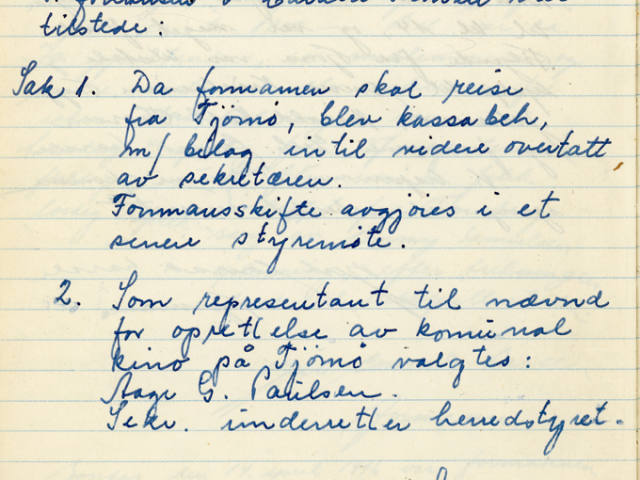 tilstede:
Sak 1. Da formannen skal reise
fra Tjömö, blev kassabeh,
m/ bilag intil videre overtatt
av sekretæren.
Formannsskifte avgjöies i et
senere styremöte.
2. Som representant til nævnd
for oprettelse av komunal
kino på Tjömö valgtes:
Aage G. Paulsen.
Sekr. underretter herredstyret.